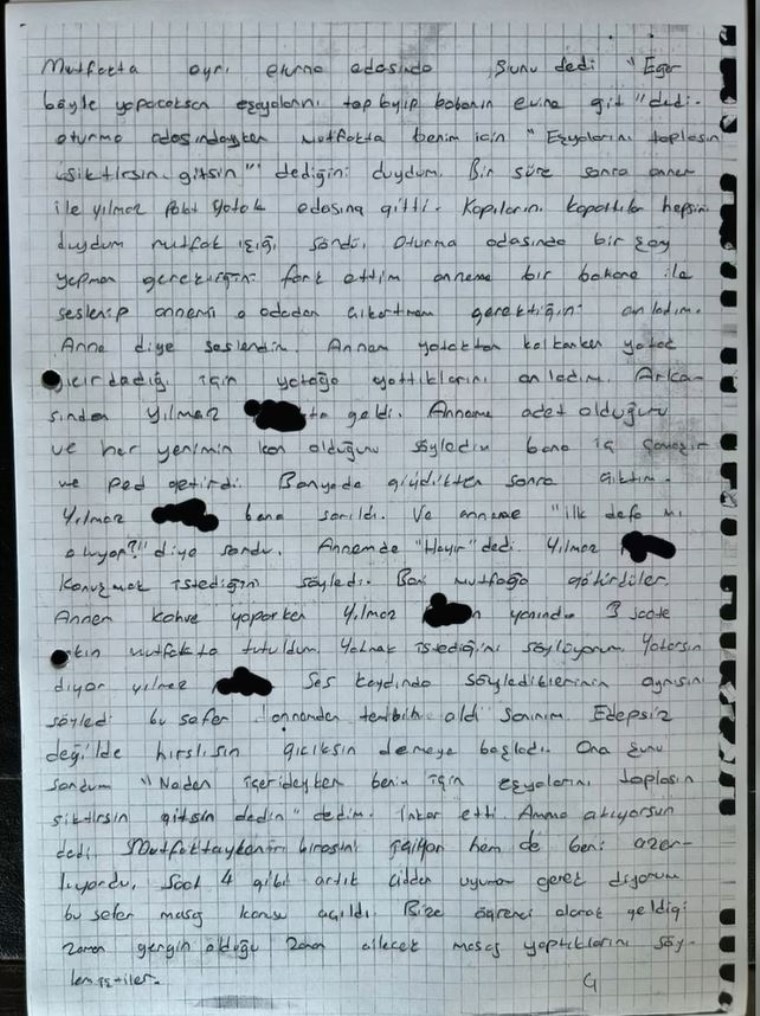 Mutfakta ayrı oturma odasında şunu dedi "Eğer
böyle yapacaksan eşyalarını toplayıp babanın evine git" dedi.
oturma odasındayken mutfakta benim için "Eşyalarını toplasın
siktirsin gitsin" dediğini duydum. Bir süre sonra annem
ile yılmaz yatak odasına gitti. Kapıların kapattılar hepsini
duydum mutfak ışığı söndü. Oturma odasında bir şey
yapmam gerektiğini fark ettim anneme bir bahane ile
seslenip annemi o odadan çıkartmam gerektiğini anladım.
Anne diye seslendim. Annem yataktan kalkarken yatak
gıcırdadığı için yatağa yattıklarını anladım. Arka-
sından Yılmaz geldi. Anneme adet olduğumu
ve her yerimin kan olduğunu söyledim bana iç çamaşır
ve ped getirdi. Banyoda giyidikten sonra çıktım.
Yılmaz bana sarıldı. Ve anneme "ilk defa mı
oluyor?!" diye sordu. Annemde "Hayır" dedi. Yılmaz
konuşmak istediğini söyledi. Beni mutfağa götürdüler.
Annem kahve yaparken Yılmaz yanında 3 saate
akın mutfakta tutuldum. Yatmak istediğimi söylüyorum. Yatarsın
diyor yılmaz Ses kaydında söylediklerinin aynısını
söyledi bu sefer annenden tembih aldı sanırım. Edepsiz
değilde hırslısın gıcıksın demeye başladı. Ona şunu
sordum "Neden içerideyken benim için eşyalarını toplasın
siktirsin gitsin dedin" dedim. İnkar etti. Amma atıyorsun
dedi. Mutfaktayken birasını içiyor hem de beni azar-
lıyordu. Saat 4 gibi artık cidden uyumam gerek diyorum
bu sefer masaj konusu açıldı. Bize öğrenci olarak geldiği
zaman gergin olduğu zaman ailecek masaj yaptıklarını söy-
lemiştiler.